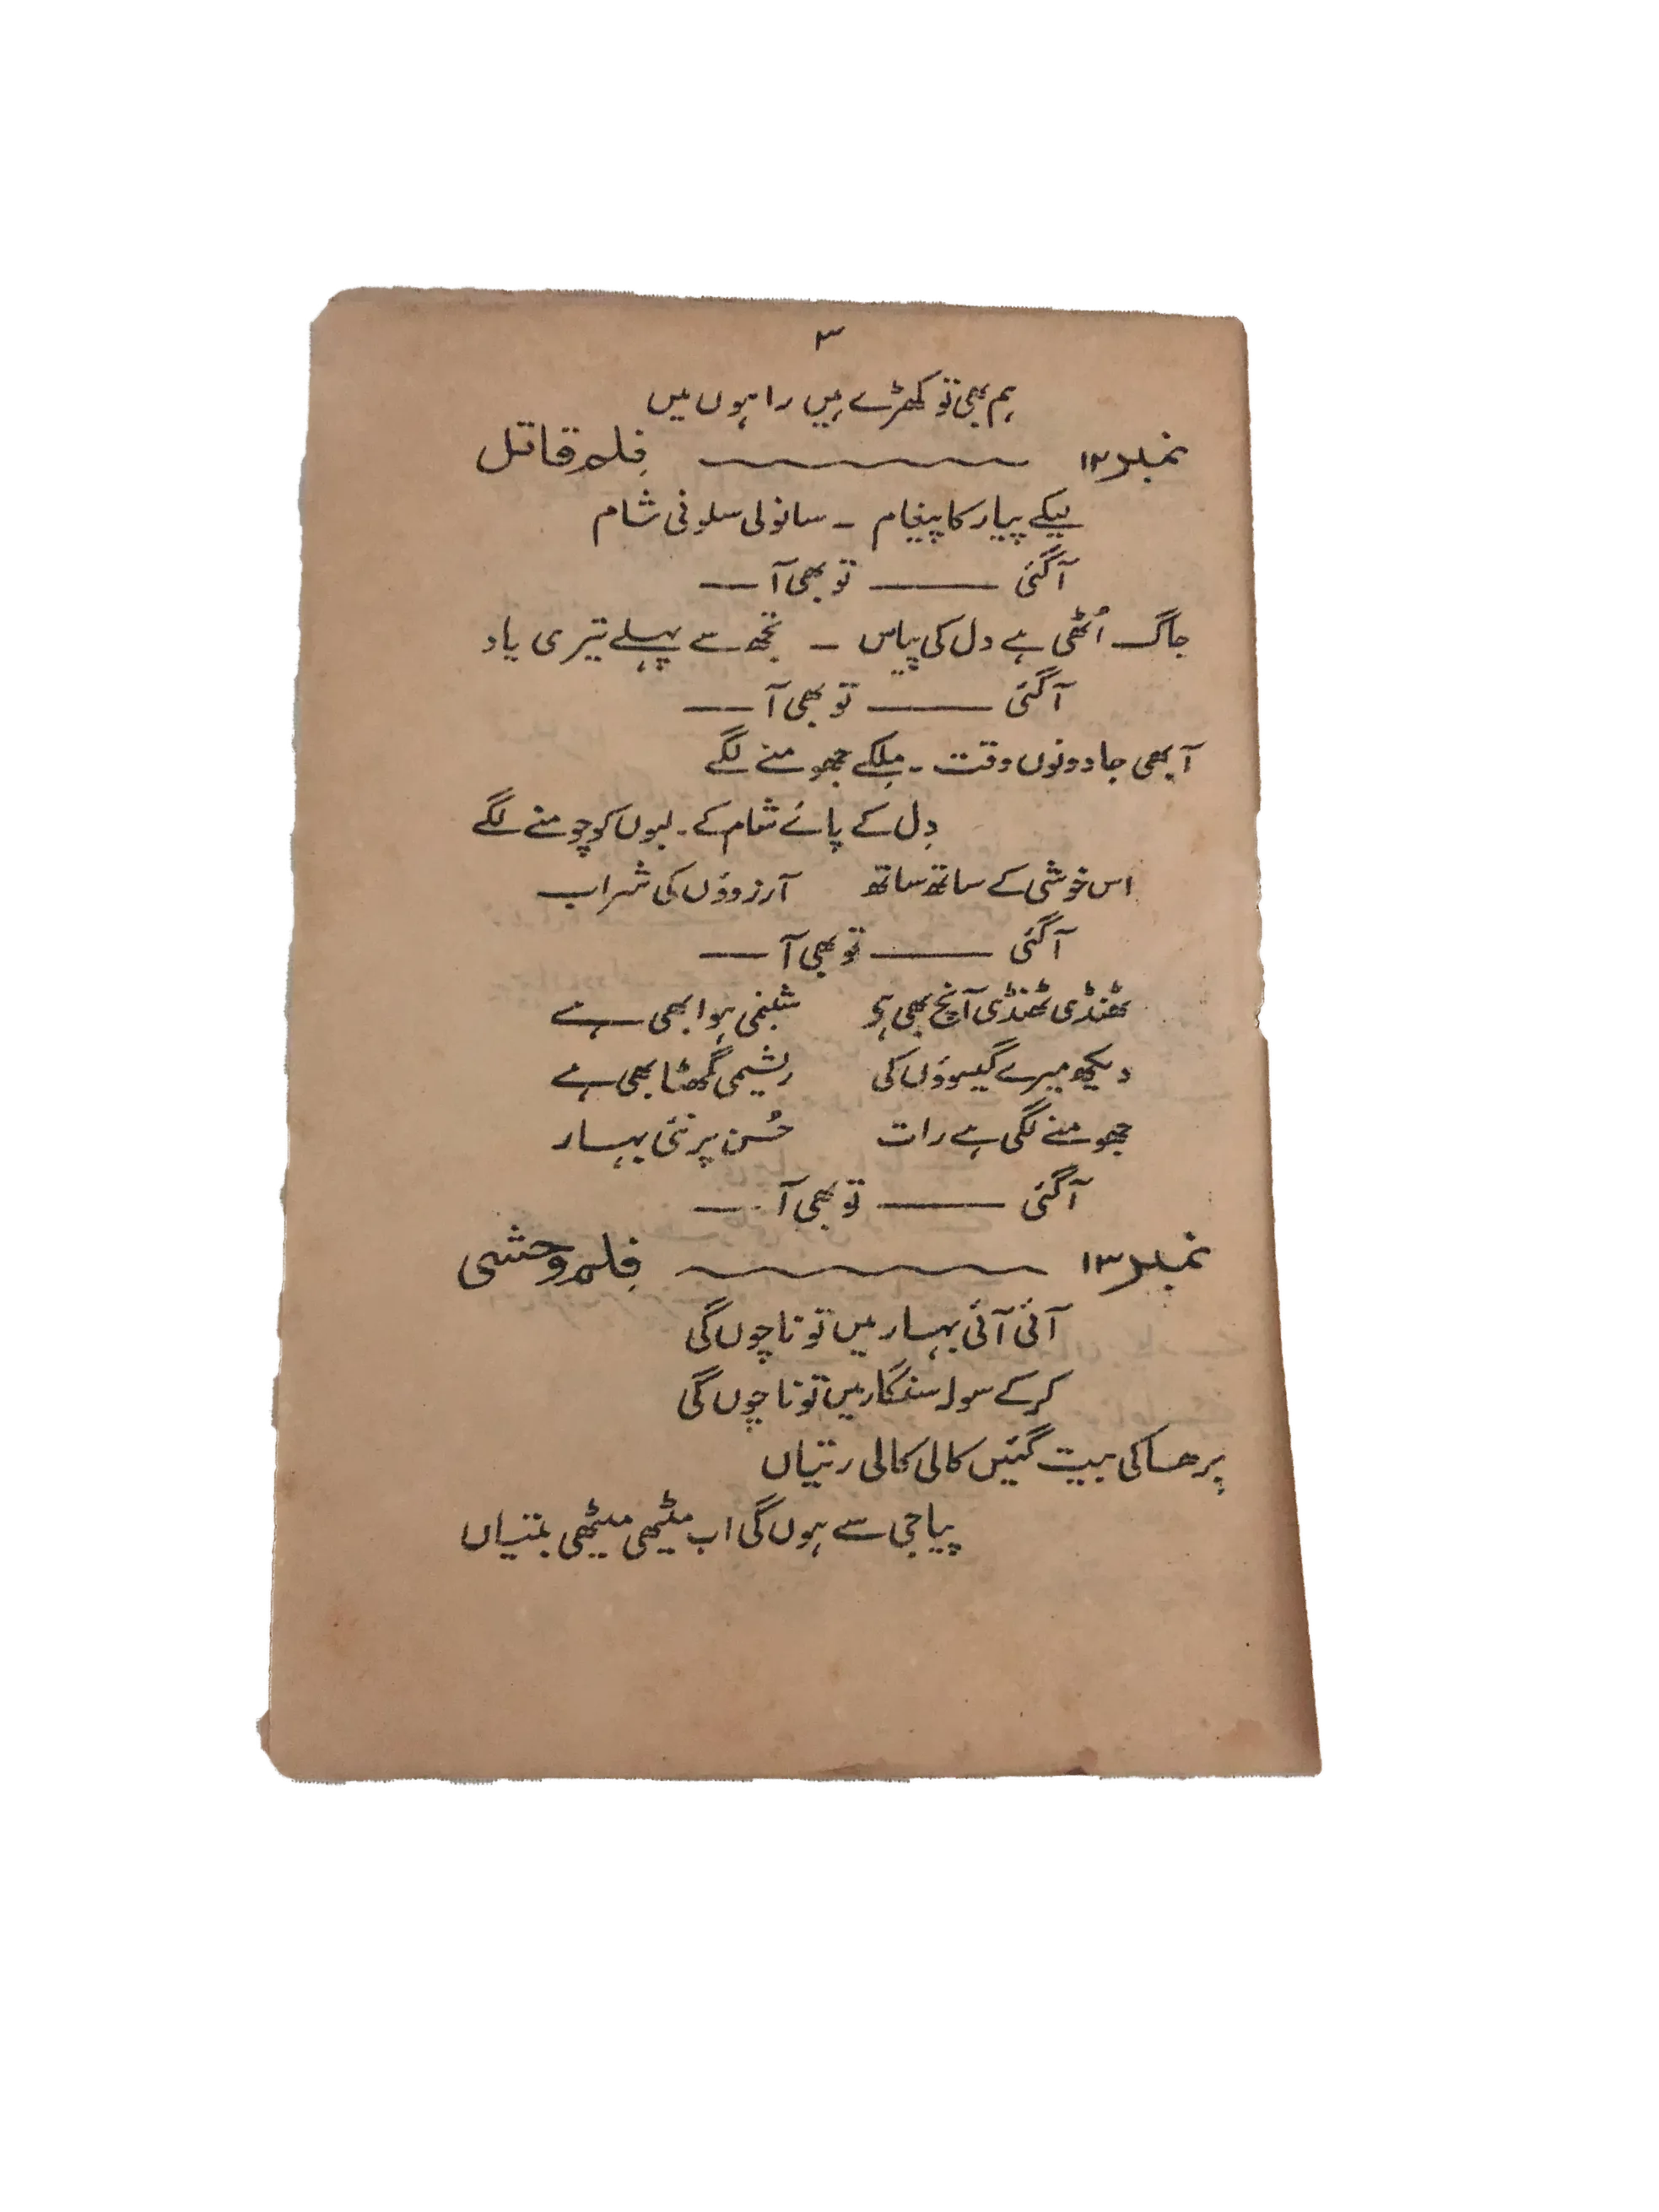 ۳
ہم بھی تو کھڑے ہیں راہوں میں
نمبر ۱۲ فلم قاتل
لیکے پیار کا پیغام - سانولی سلونی شام
آگئی —— تو بھی آ ——
جاگ اُٹھی ہے دل کی پیاس - تجھ سے پہلے تیری یاد
آگئی —— تو بھی آ ——
آ بھی جا دونوں وقت - مِلکے جھومنے لگے
دِل کے پائے شام کے - لبوں کو چومنے لگے
اس خوشی کے ساتھ ساتھ آرزوؤں کی شراب
آگئی —— تو بھی آ ——
ٹھنڈی ٹھنڈی آنچ بھی ہو شبنمی ہوا بھی ہے
دیکھو میرے گیسوؤں کی ریشمی گھٹا بھی ہے
جھومنے لگی ہے رات حُسن پر نئی بہار
آگئی —— تو بھی آ ——
نمبر ۱۳ فلم وحشی
آئی آئی بہار میں تو ناچوں گی
کر کے سولہ سنگار میں تو ناچوں گی
برھا کی بیت گئیں کالی کالی رتیاں
پیا جی سے ہوں گی اب میٹھی میٹھی بتیاں